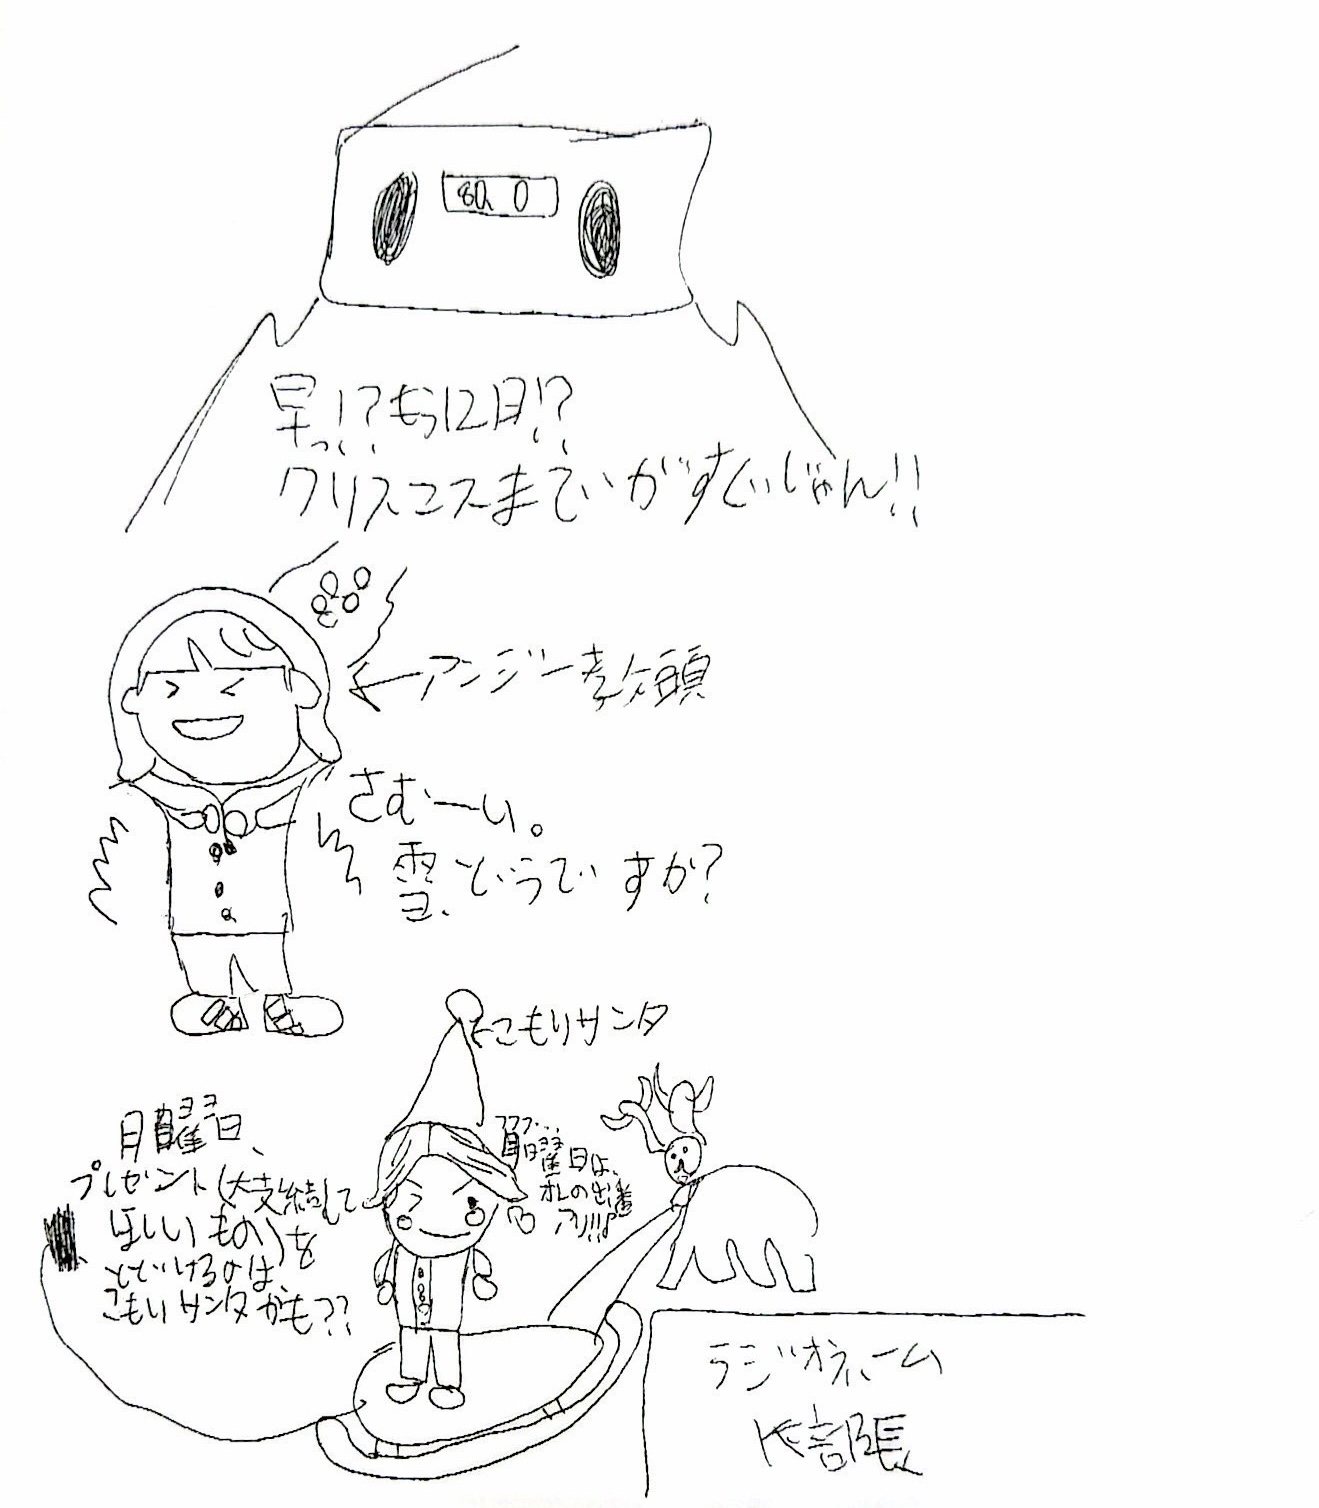 80.0
早っ!?もう12月!?
クリスマスまでがすぐじゃん!!
アンジー教頭
さむーい。
雪、どうですか?
こもりサンタ
月曜日、
プレゼント(大支給して
ほしいもの)を
とどけるのは、
こもりサンタかも??
フフフ…
月曜日は、
オレの出番
アリ!!!
ラジオネーム
K部長